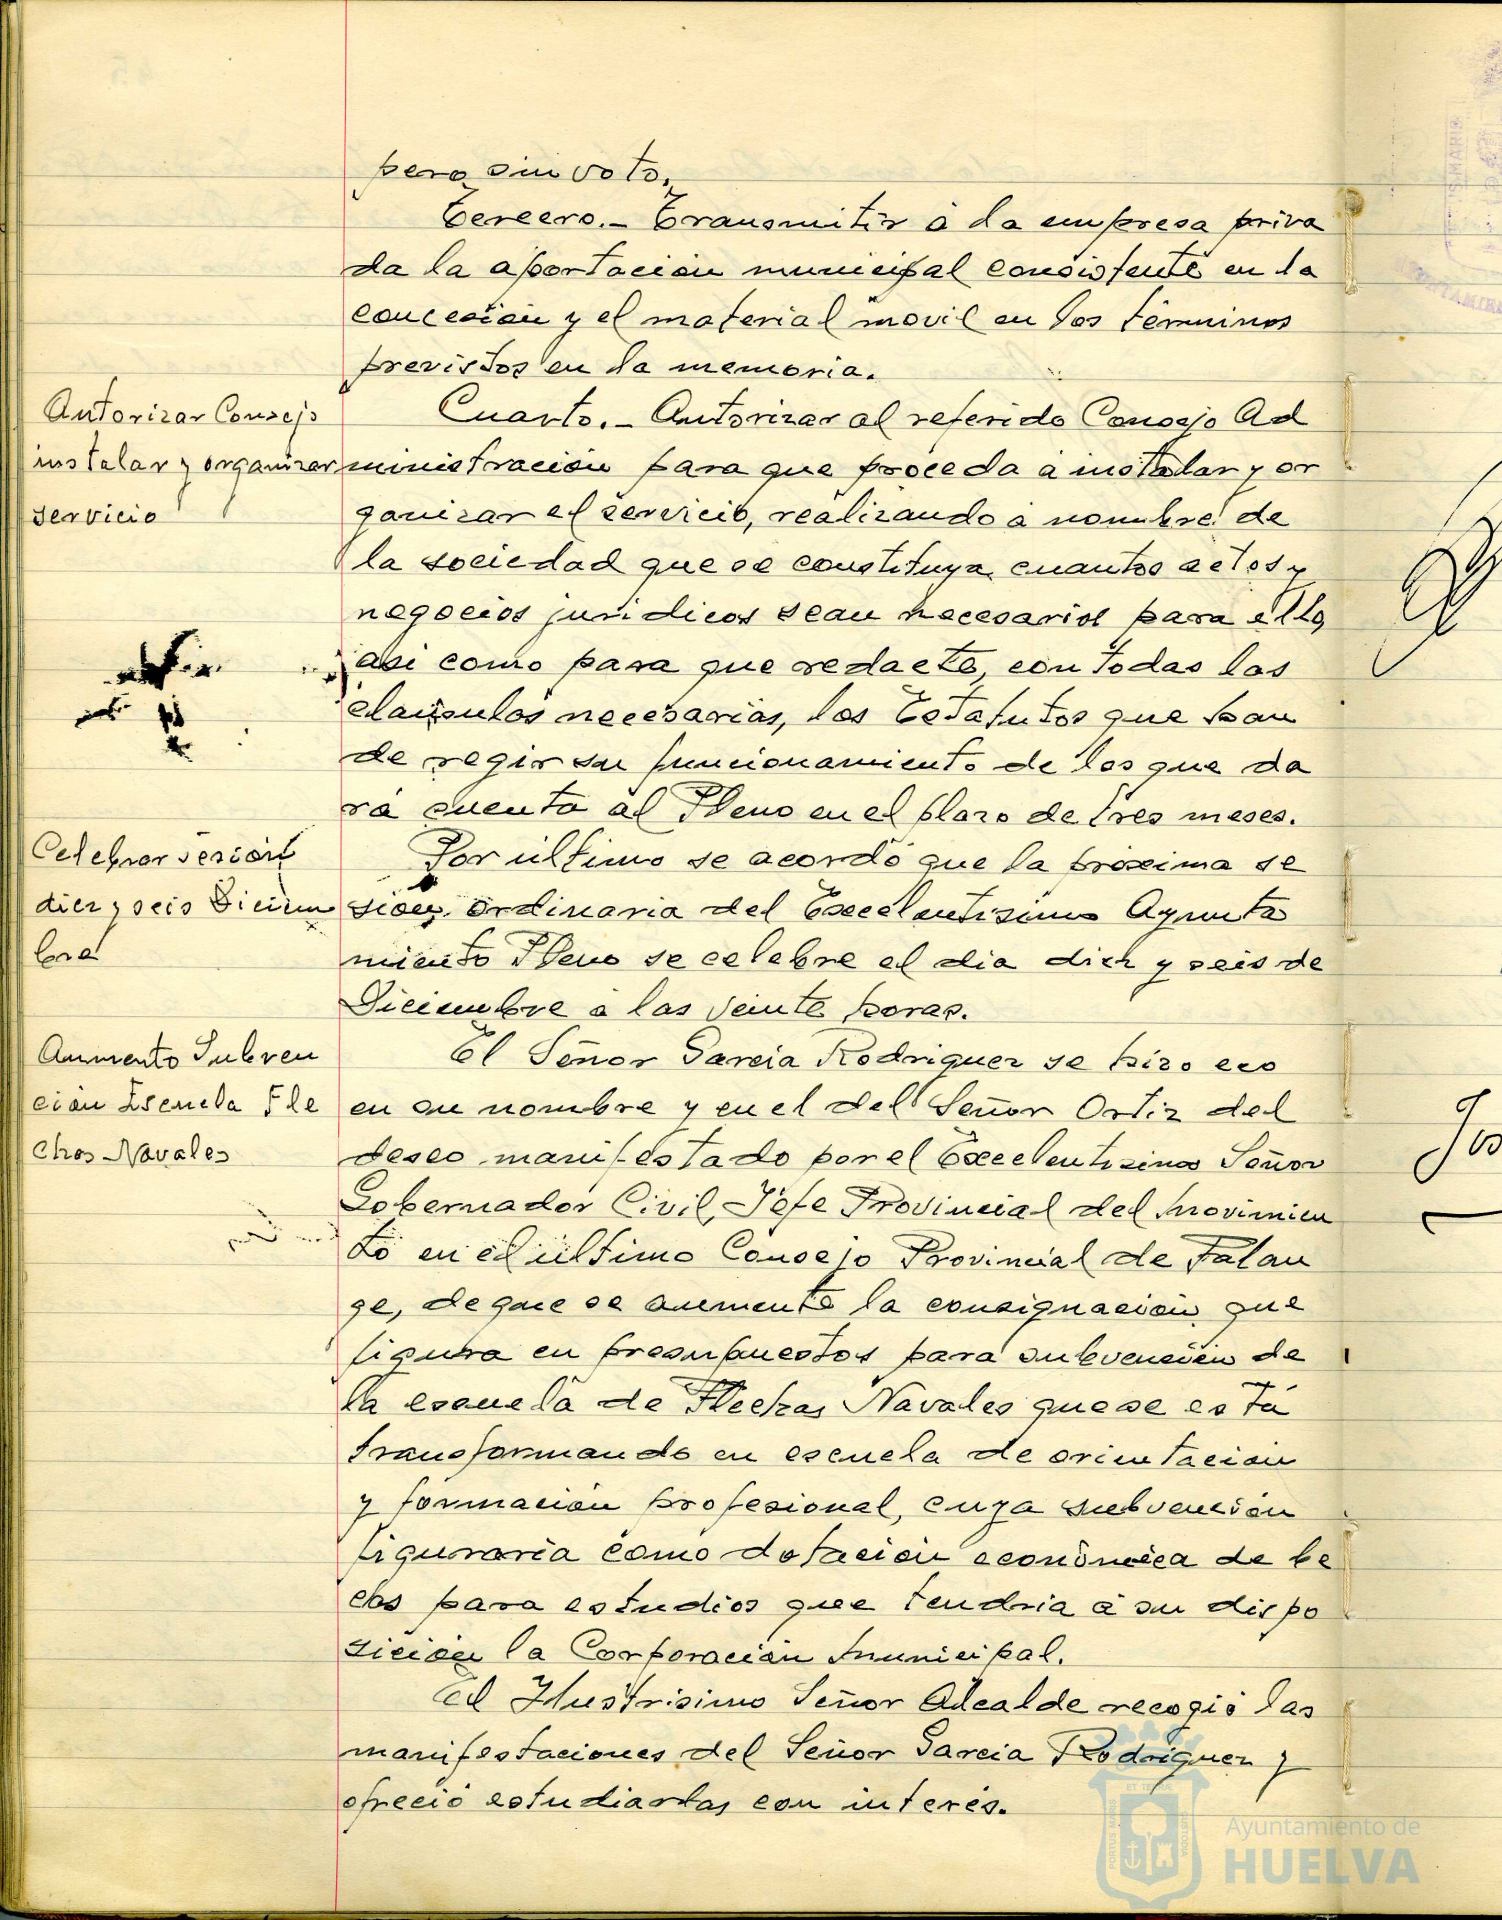 pero sin voto.
Tercero.- Transmitir á la empresa priva
da la aportación municipal consistente en la
concesión y el material movil en los términos
previstos en la memoria.
Autorizar Consejo
instalar y organizar
servicio
Cuarto.- Autorizar al referido Consejo Ad
ministración para que proceda á instalar y or
ganizar el servicio, realizando á nombre de
la sociedad que se constituya cuantos actos y
negocios juridicos sean necesarios para ello,
asi como para que redacte, con todas las
clausulas necesarias, los Estatutos que han
de regir su funcionamiento de los que da
rá cuenta al Pleno en el plazo de tres meses.
Celebrar sesión
diez y seis Diciem
bre
Por último se acordó que la proxima se
sion ordinaria del Excelentisimo Ayunta
miento Pleno se celebre el dia diez y seis de
Diciembre a las veinte horas.
Aumento Subven
ción Escuela Fle
chas Navales
El Señor Garcia Rodriguez se hizo eco
en su nombre y en el del Señor Ortiz del
deseo manifestado por el Excelentisimo Señor
Gobernador Civil, Jefe Provincial del Movimien
to en el último Consejo Provincial de Falan
ge, de que se aumente la consignación que
figura en presupuestos para subvención de
la escuela de Flechas Navales que se está
transformando en escuela de orientación
y formación profesional, cuya subvención
figuraria como dotación económica de be
cas para estudios que tendria á su dispo
sición la Corporación Municipal.
El Ilustrisimo Señor Alcalde recogió las
manifestaciones del Señor Garcia Rodriguez y
ofreció estudiarlas con interés.
Ayuntamiento de
HUELVA